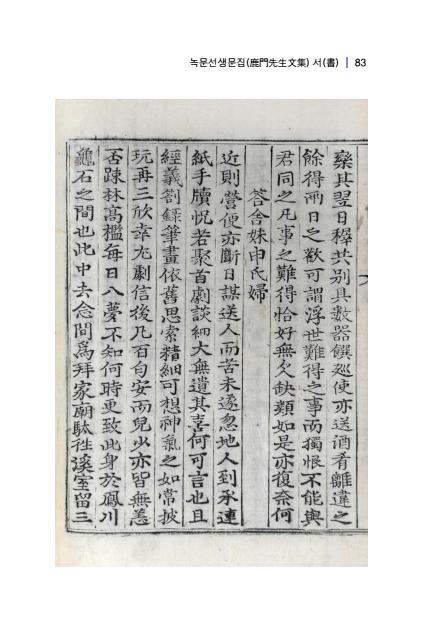 녹문선생문집(鹿門先生文集) 서(書) | 83
粲其翌日稺共别具數器饌廵使亦送酒肴離違之
餘得兩日之歡可謂浮世難得之事而獨恨不能與
君同之凡事之難得恰好無欠缺類如是亦復奈何
答舍妹申氏婦
近則營便亦斷日謀送人而苦未遂忽地人到承連
紙手牘怳若聚首劇談細大無遺其喜何可言也且
經義劄錄筆畫依舊思索精細可想神氣之如常披
玩再三欣幸尤劇信後凡百句安而兒少亦皆無恙
否踈林高檻每日入夢不知何時更致此身於鳳川
龜石之間也此中去念間爲拜家廟馱徃溪室留三